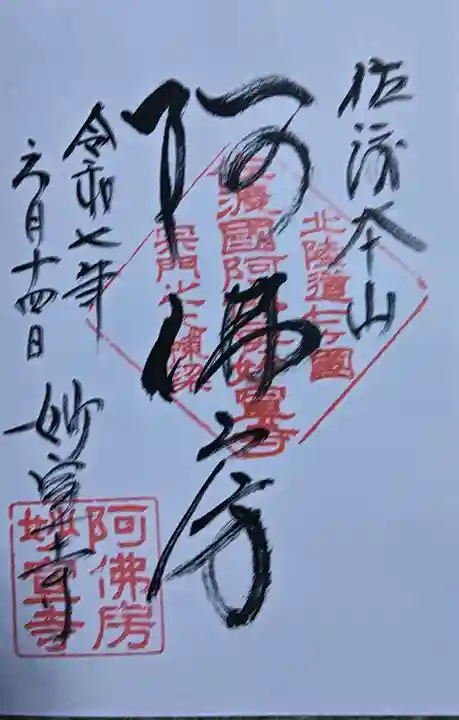 佐渡本山
阿佛房
令和七年
六月十四日
妙宣寺
北陸道七ケ國
佐渡國阿佛房妙宣寺
阿佛房
妙宣寺